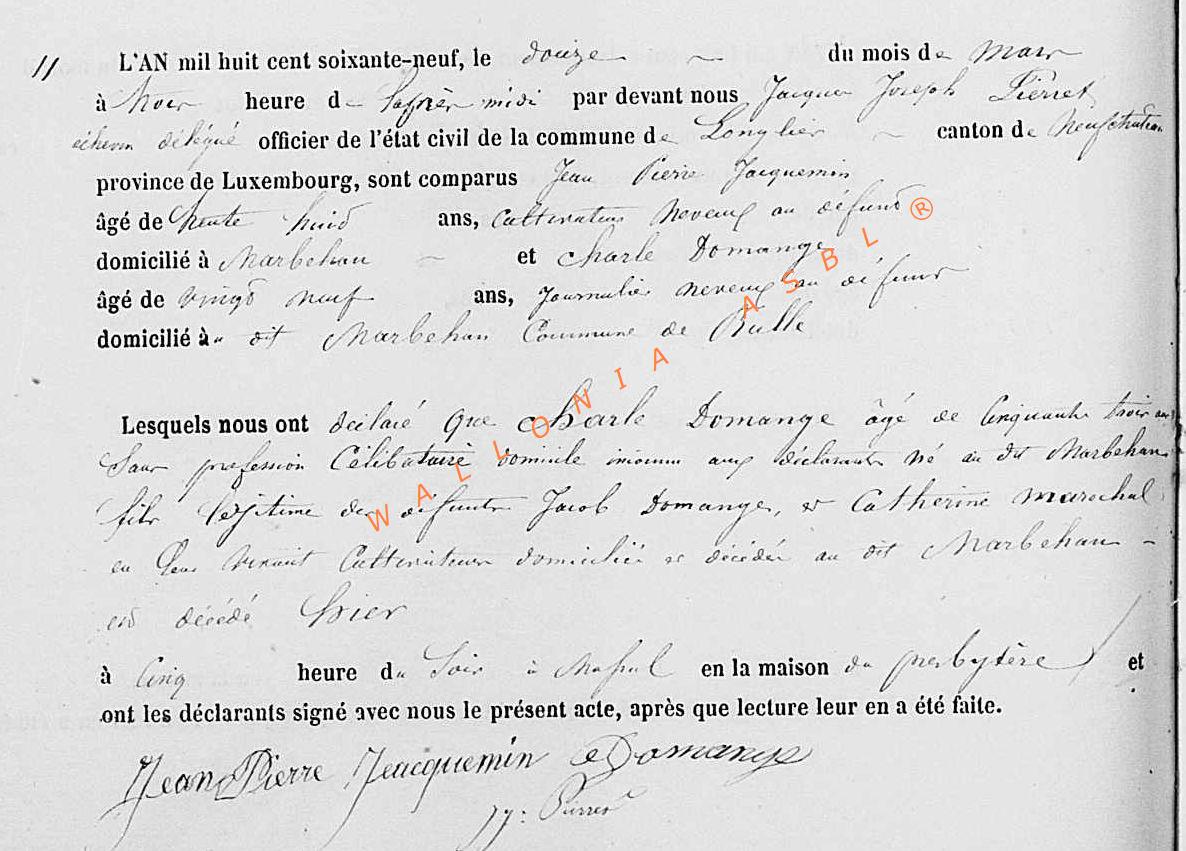 11 L'AN mil huit cent soixante-neuf, le douze du mois de Mars
à trois heure de l'après midi par devant nous Jacques Joseph Pierret
échevin délégué officier de l'état civil de la commune de Longlier canton de Neufchateau
province de Luxembourg, sont comparus Jean Pierre Jacquemin
âgé de trente huit ans, cultivateur neveux au défunt
domicilié à Marbehan et Charle Domange
âgé de vingt neuf ans, journalier neveux au défunt
domicilié à au dit Marbehan Commune de Rulle
Lesquels nous ont déclaré que Charle Domange âgé de Cinquante trois ans
sans profession Célibataire domicile inconnu aux déclarants né au dit Marbehan
fils légitime des défunts Jacob Domange, et Catherine Marechal
en leur vivant Cultivateurs domiciliés et décédés au dit Marbehan
est décédé hier
à Cinq heure du Soir à Massul en la maison du presbytère et
ont les déclarants signé avec nous le présent acte, après que lecture leur en a été faite.
Jean Pierre Jeacquemin C Domange
JJ: Pierret
WALLONIA ASBL ®